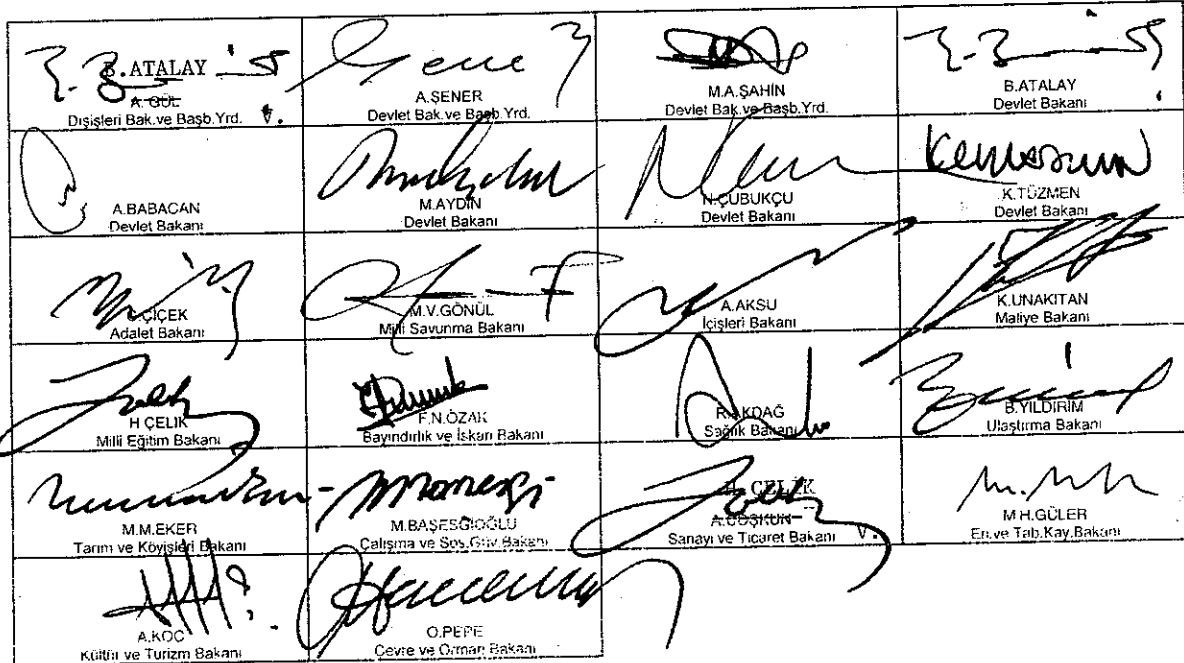 B.ATALAY
A. GÜL
Dışişleri Bak.ve Başb.Yrd. V.
A.ŞENER
Devlet Bak.ve Başb.Yrd.
M.A.ŞAHİN
Devlet Bak.ve Başb.Yrd.
B.ATALAY
Devlet Bakanı
A.BABACAN
Devlet Bakanı
M.AYDIN
Devlet Bakanı
N.ÇUBUKÇU
Devlet Bakanı
K.TÜZMEN
Devlet Bakanı
C.ÇİÇEK
Adalet Bakanı
M.V.GÖNÜL
Milli Savunma Bakanı
A.AKSU
İçişleri Bakanı
K.UNAKITAN
Maliye Bakanı
H ÇELİK
Milli Eğitim Bakanı
F.N.ÖZAK
Bayındırlık ve İskan Bakanı
R.AKDAĞ
Sağlık Bakanı
B.YILDIRIM
Ulaştırma Bakanı
M.M.EKER
Tarım ve Köyişleri Bakanı
M.BAŞESGİOĞLU
Çalışma ve Sos.Güv.Bakanı
H. ÇELİK
A.COŞKUN
Sanayi ve Ticaret Bakanı V.
M H.GÜLER
En.ve Tab.Kay.Bakanı
A.KOÇ
Kültür ve Turizm Bakanı
O.PEPE
Çevre ve Orman Bakanı